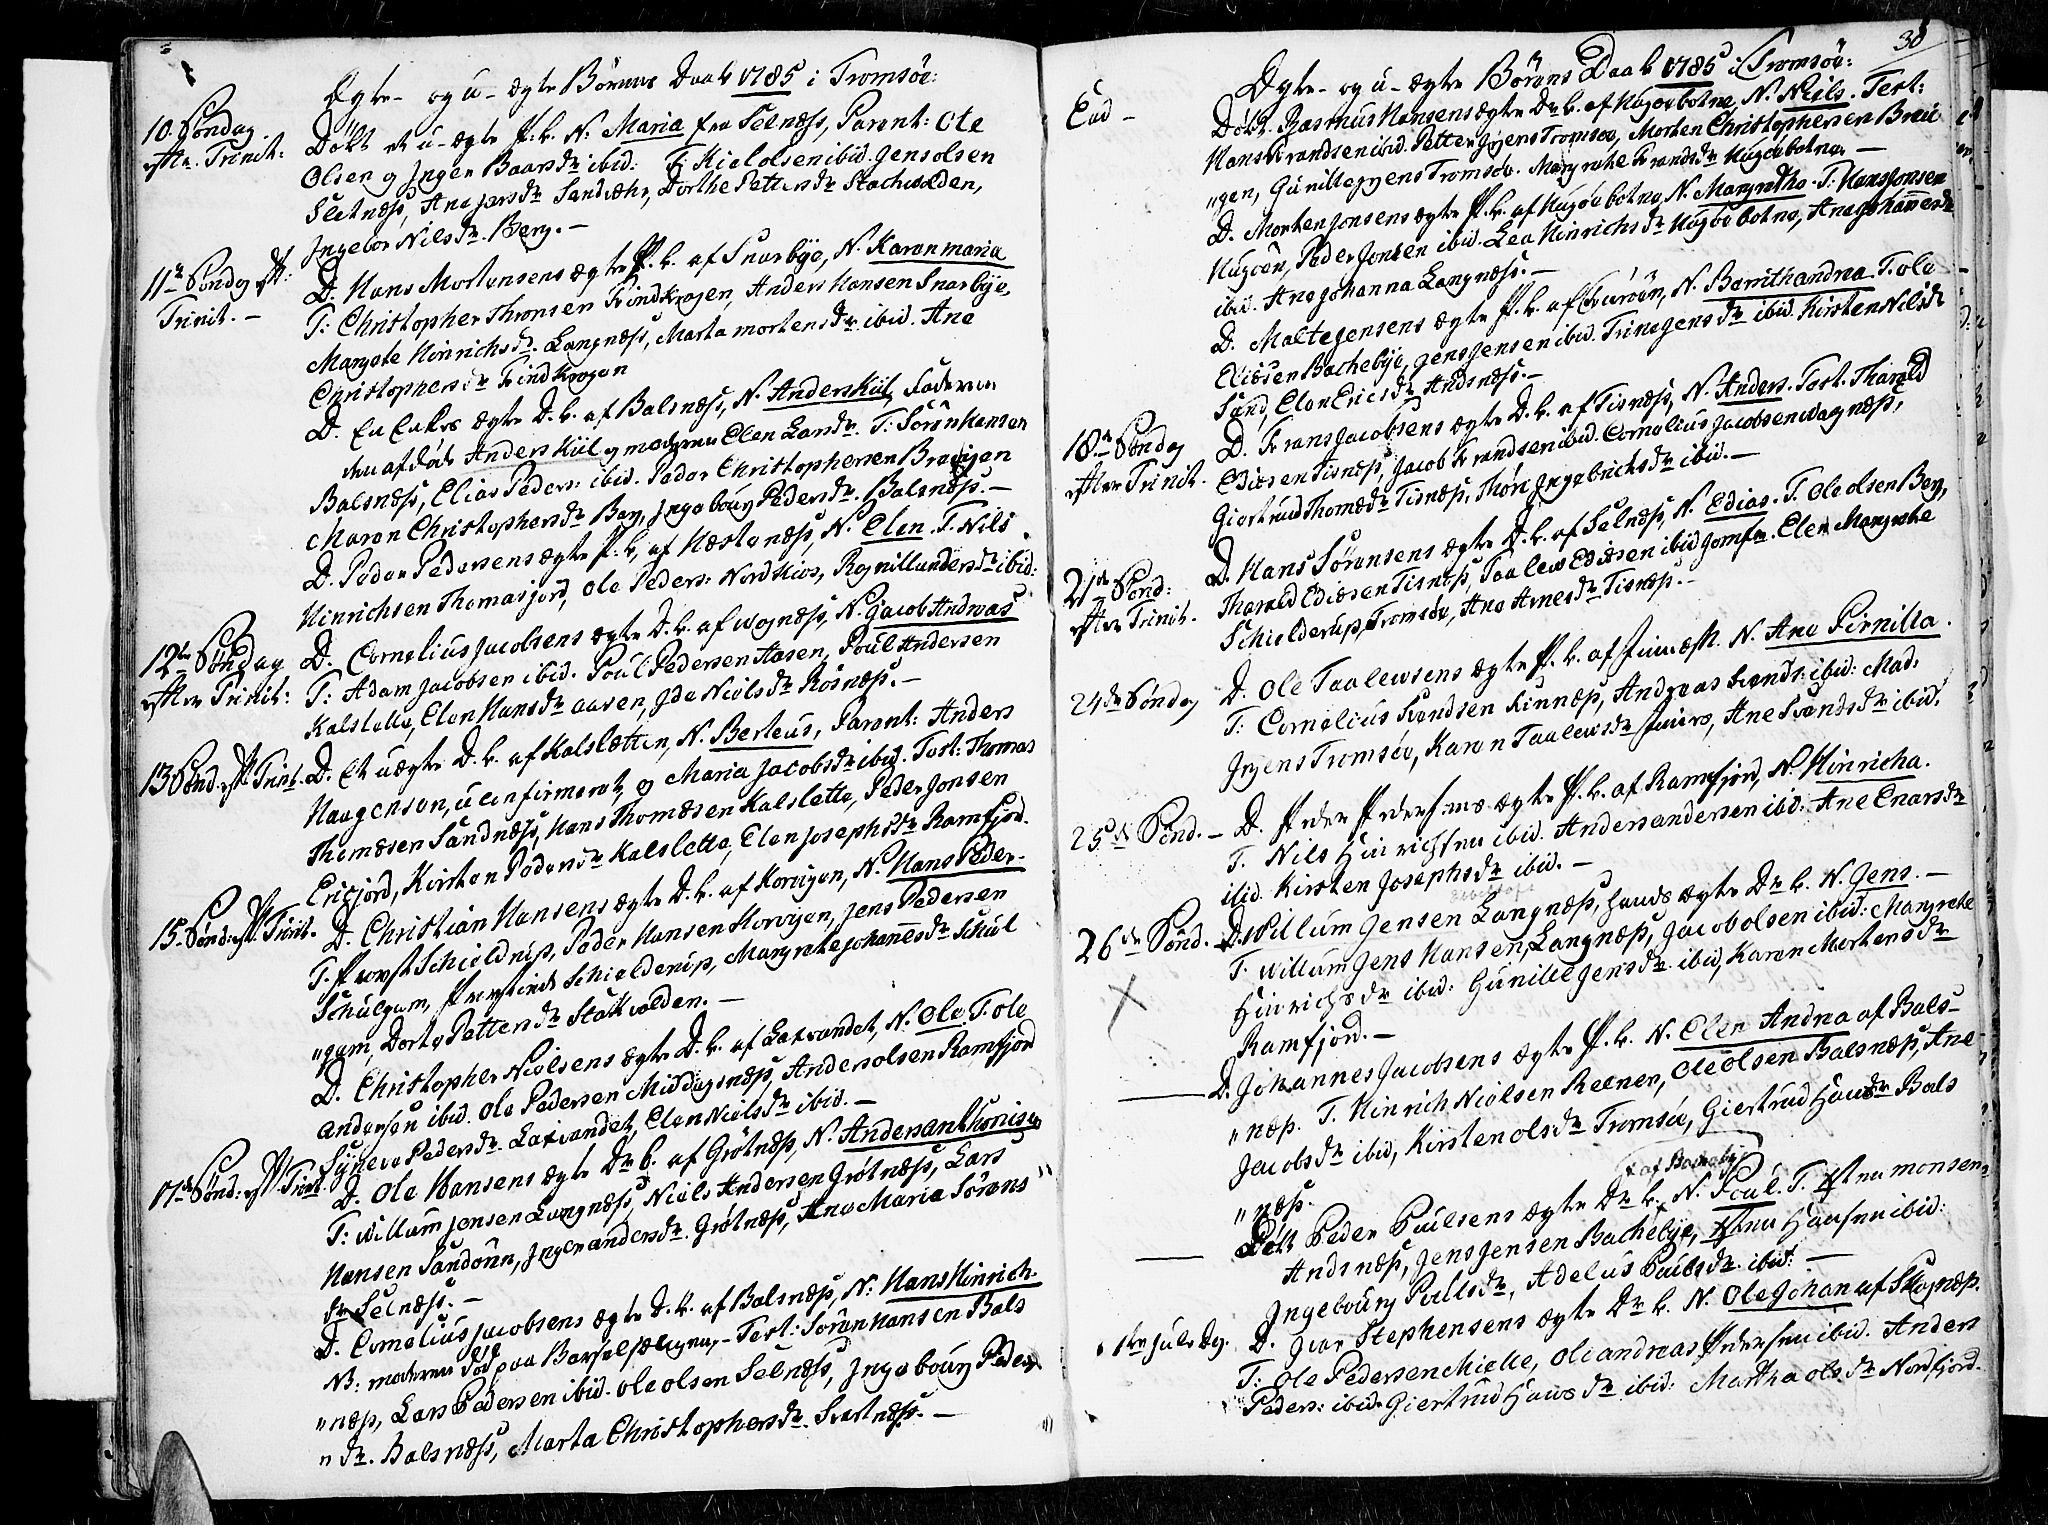 Ægte- og u-ægte Börns Daab 1785 i Tromsöe:
10. Söndag
efter Trinit:
Döbt et u-ægte P.b. N: Maria fra Selnæss, Parent: Ole
Olsen og Inger Baarsdr ibid: T: Kiel olsen ibid. Jens olsen
Sletnæss, Ane Jarsdr Sandæhr, Dorthe Pettersdr Stachwolden,
Ingebor Nilsdr. Berg. —
11te Söndag eft:
Trinit. —
D. Hans Mortensens ægte P.b. af Snarbÿe, N. Karenmaria
T: Christopher Thronsen Trindkrogen, Anders Hansen Snarbÿe,
Margete Hinrichsdr. Langnæss, Marta mortensdr ibid. Ane
Christophersdr Trindkrogen
D. En Enkes ægte D.b. af Balsnæss, N. Anderskiil, Faderen
den afdöde Anders Kiil og moderen Elen Larsdr. T: Sören Hansen
Balsnæss, Elias Peders: ibid. Peder Christophersen Bravigen
Maren Christophersdr Berg, Ingebourg Pedersdr. Balsnæss. —
D. Peder Pedersens ægte P.b. af Hestenæss, N. Elen. T. Nils
Hinrichsen Thomasjord, Ole Peders: Nordkios, Regnill andersdr ibid:
12te Söndag
efter Trinit:
D. Cornelius Jacobsens ægte D.b. af wognæss, N. Jacob Andreas
T: Adam Jacobsen ibid. Poul Pedersen Aasen, Poul Andersen
Kalslette, Elen Hansdr aasen, Ide Nielsdr Rosnæss. —
13 Sönd. eft Trinit.
D. Et uægte D.b. af Kalsletten, N. Berteus, Parent: Anders
Haagensen, uconfirmeret, og Maria Jacobsdr ibid. Test: Thomas
Thomæsen Sandnæss, Hans Thomæsen Kalslette, Peder Jonsen
Ericjord, Kirsten Pedersdr Kalslette, Elen Josephsdr Ramfjord.
15 Sönd: eft Trinit.
D. Christian Hansens ægte D.b. af Korvigen, N. Hans Peder-
T. Provst Schieldrup, Peder Hansen Korvigen, Jens Pedersen
Schulgam, Provstinde Schielderup, Margrete Johannesdr Schul
"gam, Dorte Pettersdr Stakvolden. —
D. Christopher Nielsens ægte D.b. af Laxvandet, N. Ole. T. ole
andersen ibid. Ole Pedersen Middagsnæss, Anders olsen Ramfjord
Sÿneve Pedersdr. Laxvandet, Elen Nielsdr ibid. —
17de Sönd: eft Trinit.
D. Ole Hansens ægte Dr b. af Grötnæss, N. Andersanthonisen
T: Willum Jensen Langnæss, Niels Andersen Grötnæss, Lars
Hansen Sandören, Inger andersdr. Grötnæss, Ane Maria Sörens
dr Selnæss. —
D. Cornelius Jacobsens ægte D.b. af Balsnæss, N: Hans Hinrich.
NB: moderen död paa Barselsængen, - Test: Sören Hansen Bals
"næss, Lars Pedersen ibid. ole olsen Selnæss, Ingebourg Peders
" dr. Balsnæss, Marta Christophersdr. Svartnæss. —
38
Ægte- og u-ægte Börns Daab 1785 i Tromsöe:
Eod —
Döbt. Rasmus Hansens ægte Dr b. af Kugoebotne, N. Niels. Test:
Hans Frandsen ibid. Petter Jrgens Tromsöe, Morten Christophersen Bravi
"gen, Gunille Jrgens Tromsöe. Margrethe Frandsdr Kugoebotne. —
D. Morten Jonsens ægte P.b. af Kugöebotne, N. Margrethe. T: Hans Jonsen
Kugöen, Peder Jonsen ibid. Lea Hinrichsdr Kugöebotne, Ane Johannesdr
ibid. Ane Johanna Langnæss. —
D. Malte Jensens ægte P.b. af Turöen, N. Bernthandrea. T. ole
Eliesen Bachebÿe, Jens Jensen ibid. Trine Jensdr ibid. Kirsten Nilsdr
Sand, Elen Ericsdr Andsnæss. —
18de Söndag
efter Trinit.
D. Frans Jacobsens ægte D.b. af Tisnæss, N. Anders. Test. Tharald
Ediæsen Tisnæss, Jacob Frandsen ibid. Cornelius Jacobsen wagnæss,
Giertrud Thomædr Tisnæss, Thöre Ingebrichsdr ibid. —
21de Sönd:
efter Trinit.
D. Hans Sörensens ægte D.b. af Selnæss, N. Edias. T. Ole olsen Berg,
Tharald Ediæsen Tisnæss, Taalew Ediæsen ibid Jomfr. Elen Margrethe
Schielderup, Tromsöe, Ane Arnesdr Tisnæss. —
24de Söndag
D. Ole Taalewsens ægte P.b. af Finnæss. N. Ane Pernilla.
T: Cornelius Svendsen Finnæss, Andreas Svends: ibid: Mad:
Irgens Tromsöe, Karen Taalewsdr , Ane Svendsdr ibid.
25de Sönd. —
D. Peder Pedersens ægte P.b. af Ramfjord, N. Hinricha.
T. Nils Hinrichsen ibid. Anders andersen ibid: Ane Enarsdr
ibid Kirsten Josephsdr ibid. —
26de Sönd.
D. Willum Jensen Langnæss, hands ægte Dr b. N. Jens. —
T. Willum Jens Hansen, Langnæss, Jacob olsen ibid: Margrethe
Hinrichsdr ibid: Gunille Jensdr ibid, Karen Mortensdr
Ramfjord. —
D. Johannes Jacobsens ægte P.b. N. Elen Andrea af Bals-
"næss. T. Hinrich Nielsen Reenen, Ole olsen Balsnæss, Ane
Jacobsdr ibid, Kirsten olsdr Tromsöe, Giertrud Hansdr Bals
"næss.
af Bachebÿe
Döbt Peder Poulsens ægte Dr b. N. Poul. T. Peter monsen
Andsnæss, Jens Jensen Bachebÿe, Hansen ibid:
Ingebourg Poulsdr, Adelus Poulsdr ibid: —
1ste Juls Dg.
D. Iver Stephensens ægte Dr b. N. Ole Johan af Skognæss.
T: Ole Pedersen Mielle, Ole andreas Pedersen ibid. Anders
Peders: ibid. Giertrud Hansdr ibid: Martha olsdr Nordfjord.